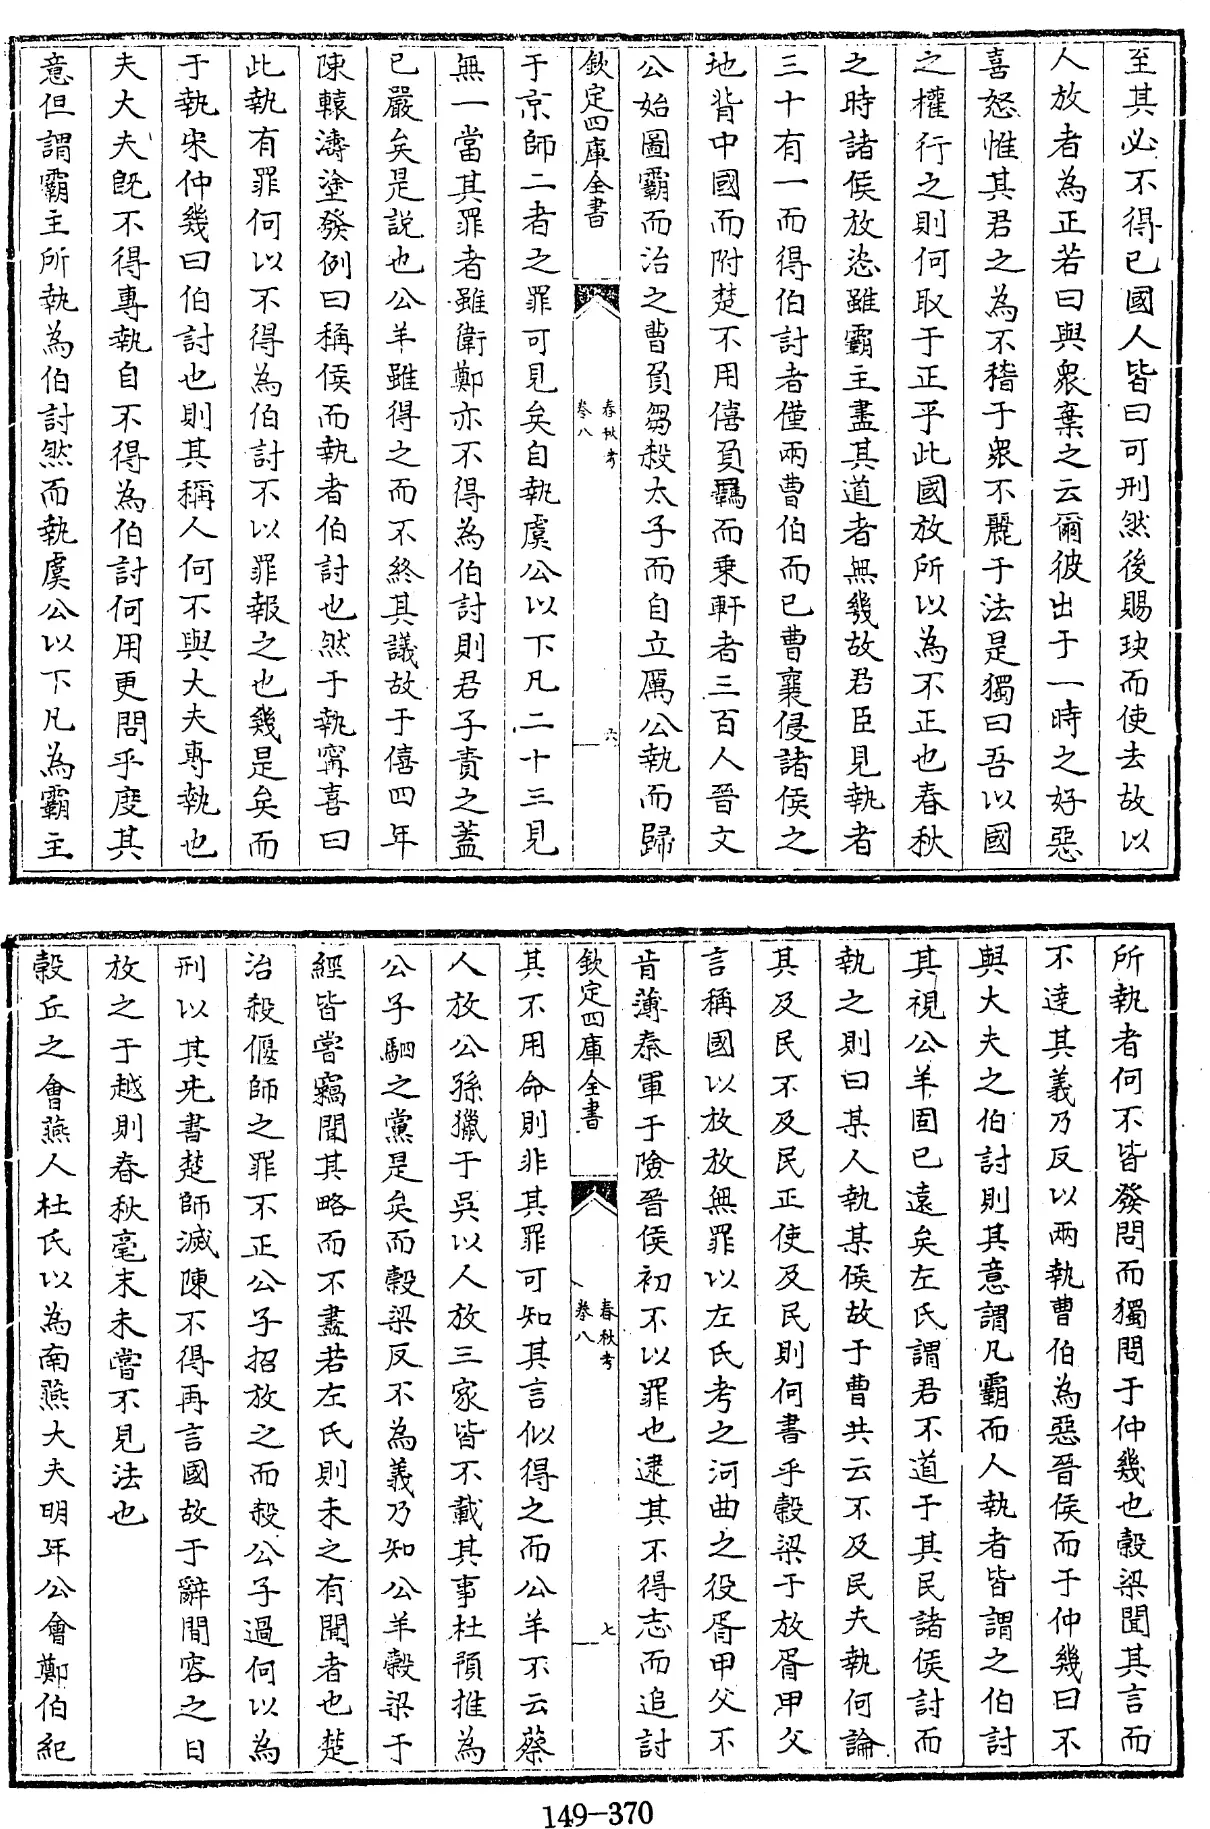 至其必不得已國人皆曰可刑然後賜玦而使去故以
人放者為正若曰與衆棄之云爾彼出于一時之好惡
喜怒惟其君之為不稽于衆不麗于法是獨曰吾以國
之權行之則何取于正乎此國放所以為不正也春秋
之時諸侯放恣雖霸主盡其道者無幾故君臣見執者
三十有一而得伯討者僅兩曹伯而已曹襄侵諸侯之
地背中國而附楚不用僖負羈而乘軒者三百人晉文
公始圖霸而治之曹負芻殺太子而自立厲公執而歸
欽定四庫全書
春秋考
卷八
六
于京師二者之罪可見矣自執虞公以下凡二十三見
無一當其罪者雖衛鄭亦不得為伯討則君子責之蓋
已嚴矣是説也公羊雖得之而不終其議故于僖四年
陳轅濤塗發例曰稱侯而執者伯討也然于執甯喜曰
此執有罪何以不得為伯討不以罪報之也幾是矣而
于執宋仲幾曰伯討也則其稱人何不與大夫專執也
夫大夫既不得專執自不得為伯討何用更問乎度其
意但謂霸主所執為伯討然而執虞公以下凡為霸主
所執者何不皆發問而獨問于仲幾也穀梁聞其言而
不達其義乃反以兩執曹伯為惡晉侯而于仲幾曰不
與大夫之伯討則其意謂凡霸而人執者皆謂之伯討
其視公羊固已遠矣左氏謂君不道于其民諸侯討而
執之則曰某人執某侯故于曹共云不及民夫執何論
其及民不及民正使及民則何書乎穀梁于放胥甲父
言稱國以放放無罪以左氏考之河曲之役胥甲父不
肯薄秦軍于險晉侯初不以罪也逮其不得志而追討
欽定四庫全書
春秋考
卷八
七
其不用命則非其罪可知其言似得之而公羊不云蔡
人放公孫獵于吳以人放三家皆不載其事杜預推為
公子駟之黨是矣而穀梁反不為義乃知公羊穀梁于
經皆嘗竊聞其略而不盡若左氏則未之有聞者也楚
治殺偃師之罪不正公子招放之而殺公子過何以為
刑以其先書楚師滅陳不得再言國故于辭間容之曰
放之于越則春秋毫末未嘗不見法也
穀丘之會燕人杜氏以為南燕大夫明年公會鄭伯紀
149-370